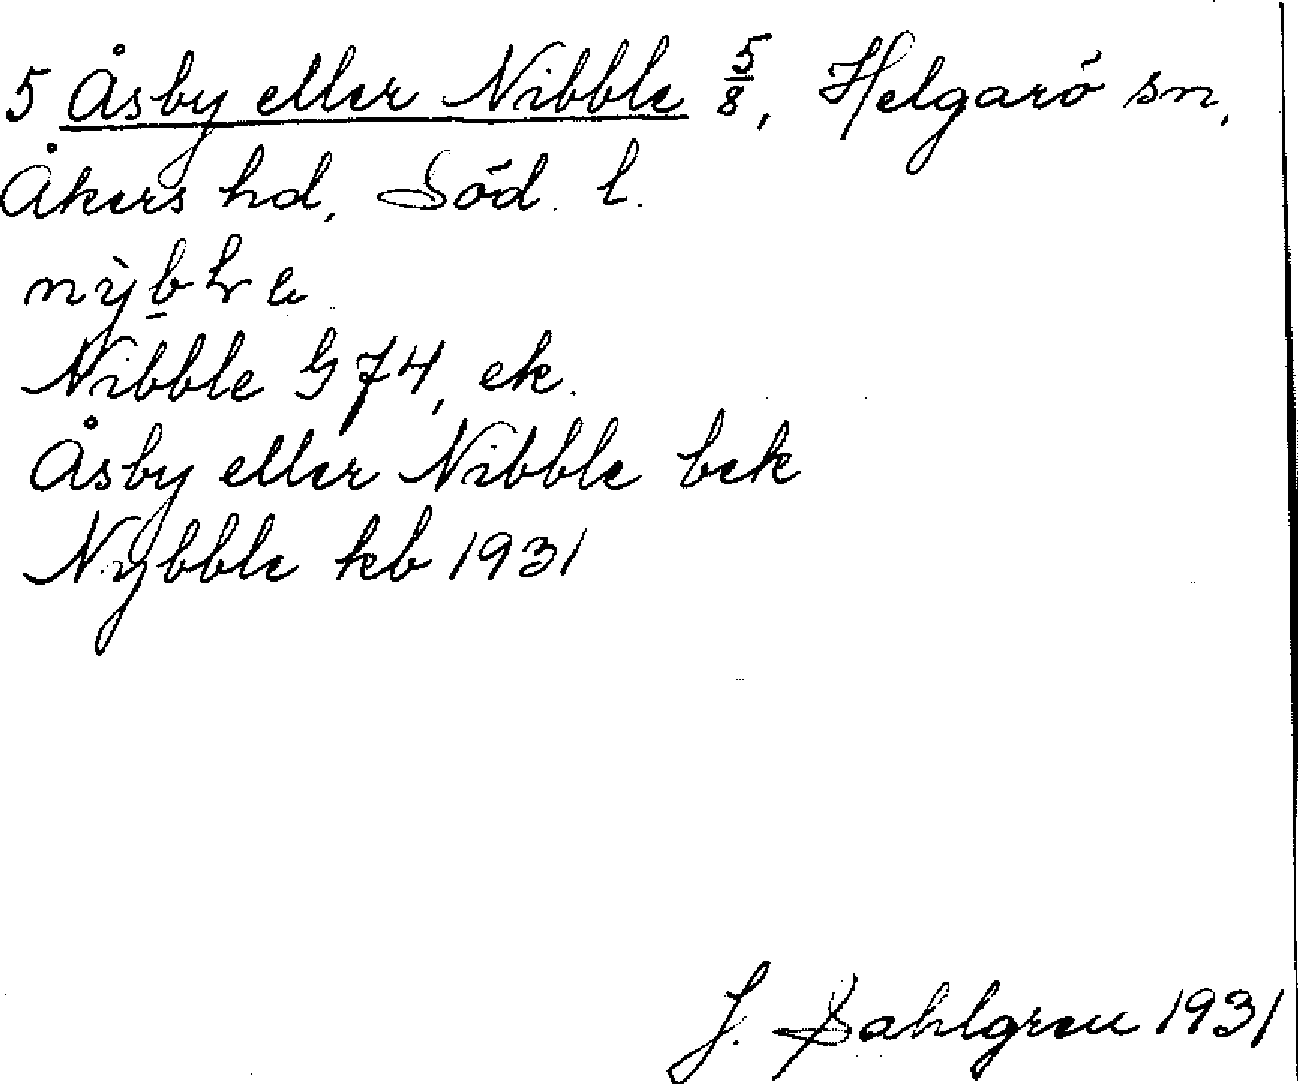 5 Åsby eller Nibble 5/8, Helgarö sn,
Åkers hd, Söd. l.
Nibble G 74, ek.
Åsby eller Nibble bek
Nybble kb 1931
J. Dahlgren 1931